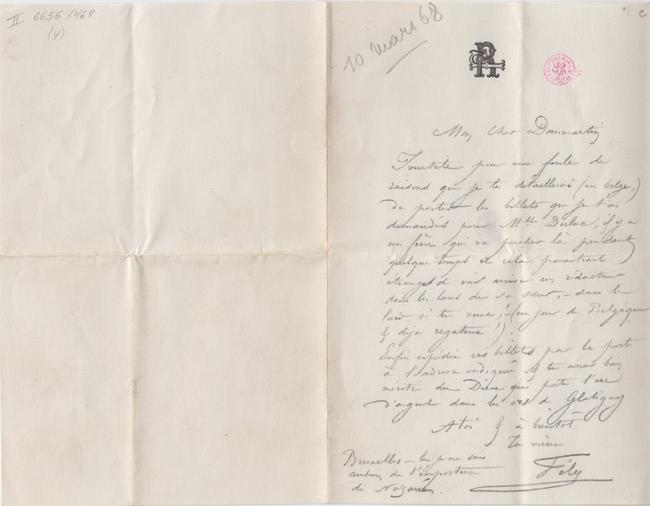 II 6655/468
(4)
10 mars 68
Mon cher Dommartin
Inutile pour une foule de
raisons que je te détaillerai (en belge,)
de porter les billets que je t'ai
demandés pour Mlle Duluc, il y a
un frère qui va percher là pendant
quelque temps et cela paraitrait
étrange de voir arriver un rédacteur
dans les lares de sa sœur, – dans le
fond si tu veux! (un jour de Belgique
& déja !).
Enfin expédie ces billets par la poste
à l'adresse indiquée & tu auras bien
mérité du Dieu qui porte l'arc
d'argent dans les de Glatigny
A toi & à bientôt
ton vieux
Fély
Bruxelles – le je ne sais
combien de l'imposture
de Nazareth.